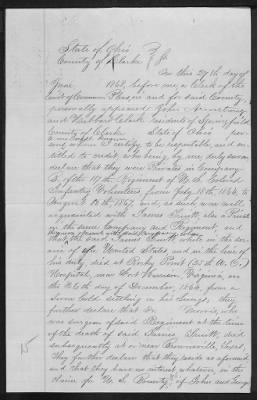 State of Ohio
County of Clarke } SS.
On this 27th day of
June 1868, before me, a Clerk of the
Court of Common Pleas in and for said County,
personally appeared John Armstrong
and Clark residents of Springfield
County of Clarke State of Ohio per-
sons whom I certify to be respectable, and en-
titled to credit, who being by me duly sworn
declare that they were Privates in Company
of the 117th Regiment of U.S. Colored
Infantry Volunteers from July 18th 1864, to
August 10th 1867, and, as such, were well
acquainted with James Truitt, also a Private
in the same Company and Regiment, and
that the said James Truitt, while in the ser-
vice of the United States, and in the line of
his duty, died at Rocky Point (25th A.C.)
Hospital, near Fort Harrison Virginia, on
the 26th day of December, 1864, from a
Severe Cold settling in his Lungs, they
further declare that Dr. Morris, who
was surgeon of said Regiment at the time
of the death of said James Truitt, died
subsequently at or near Brownsville, Texas,
They further declare that they reside as aforesaid
and that they have no interest whatever, in the
claim for U.S. Bounty, of John and
15